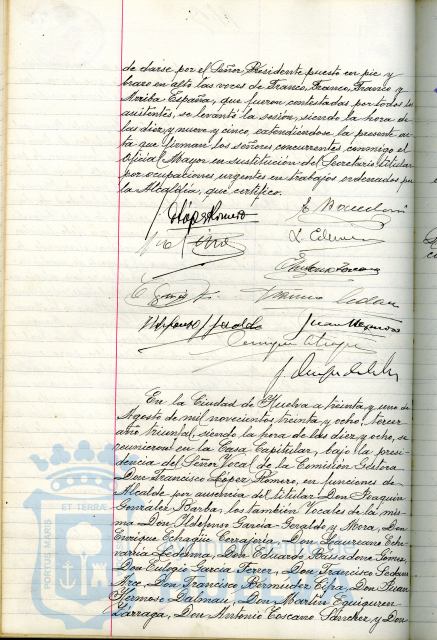 de darse por el Señor Presidente puesto en pie y
brazo en alto las voces de Franco, Franco, Franco y
Arriba España, que fueron contestadas por todos los
asistentes, se levantó la sesión, siendo la hora de
las diez y nueve y cinco, extendiéndose la presente ac-
ta que firman los señores concurrentes, conmigo el
Oficial Mayor en sustitución del Secretario titular
por ocupaciones urgentes en trabajos ordenados por
la Alcaldía, que certifico.
López Romero
En la Ciudad de Huelva a treinta y uno de
Agosto de mil novecientos treinta y ocho, tercer
año triunfal, siendo la hora de las diez y ocho, se
reunieron en la Casa Capitular, bajo la presi-
dencia del Señor Vocal de la Comisión Gestora
Don Francisco López Romero, en funciones de
Alcalde por ausencia del titular Don Joaquín
González Barba, los también Vocales de la mis-
ma Don Ildefonso García Geraldo y Mora, Don
Enrique Echagüe Cerrajería, Don Laureano Eche-
varría Ledesma, Don Eduardo Bassadone Gómez,
Don Eulogio García Ferrer, Don Francisco Sedano
Arce, Don Francisco Bermúdez Cifra, Don Juan
Hermoso Dalonau, Don Martín Eguiguren
Zárraga, Don Antonio Toscano Sánchez y Don
PORTUS MARIS
ET TERRAE